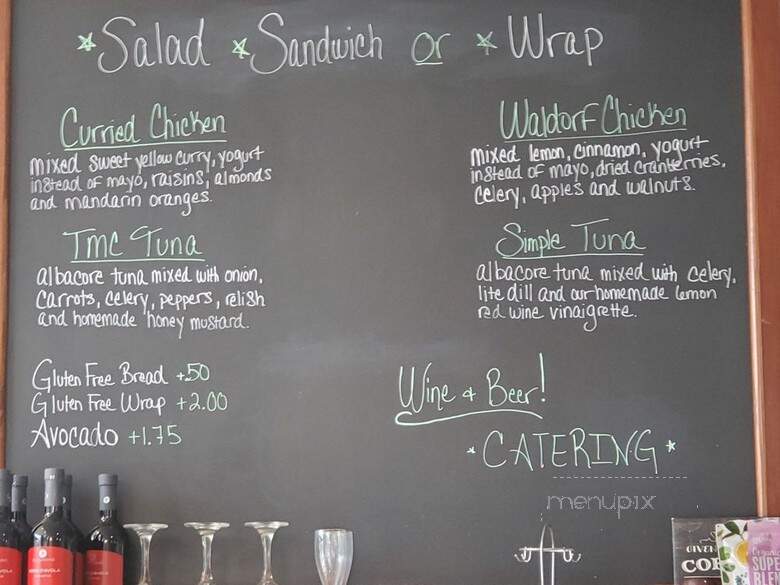 *Salad *Sandwich or *Wrap
Curried Chicken
mixed sweet yellow curry, yogurt
instead of mayo, raisins, almonds
and mandarin oranges.
TMC Tuna
albacore tuna mixed with onion,
carrots, celery, peppers, relish
and homemade honey mustard.
Gluten Free Bread +.50
Gluten Free Wrap +2.00
Avocado +1.75
Waldorf Chicken
mixed lemon, cinnamon, yogurt
instead of mayo, dried cranberries,
celery, apples and walnuts.
Simple Tuna
albacore tuna mixed with celery,
lite dill and our homemade lemon
red wine vinaigrette.
Wine & Beer!
*CATERING*
menupix